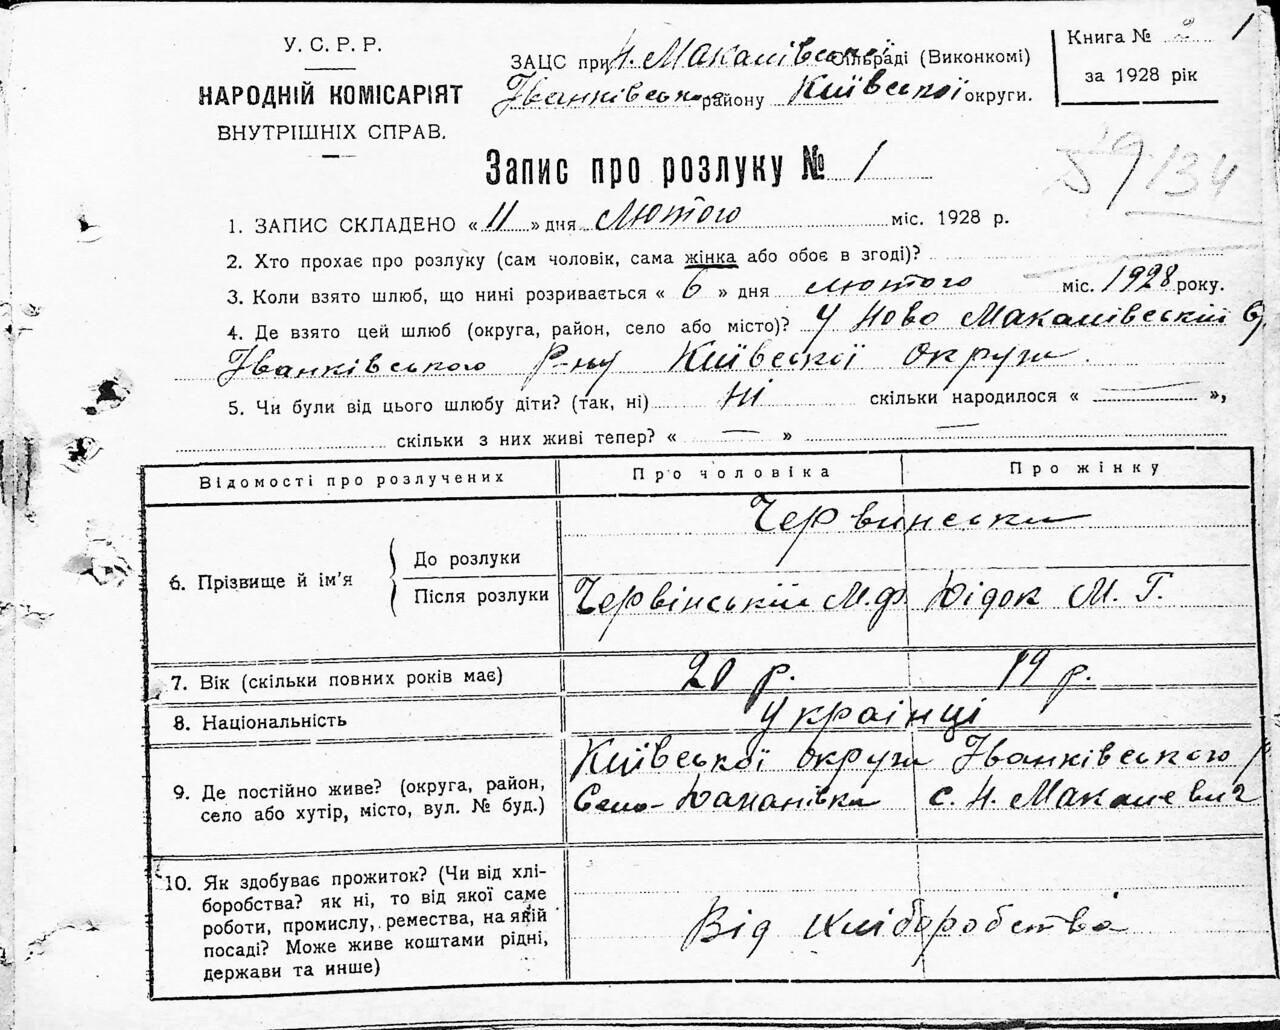 У. С. Р. Р.
НАРОДНІЙ КОМІСАРІЯТ
ВНУТРІШНІХ СПРАВ.
ЗАЦС при Н. Макалівській сільраді (Виконкомі)
Іванківського району Київської округи.
Книга №
за 1928 рік
1
134
Запис про розлуку № 1
1. ЗАПИС СКЛАДЕНО « 11 » дня Лютого міс. 1928 р.
2. Хто прохає про розлуку (сам чоловік, сама жінка або обоє в згоді)?
3. Коли взято шлюб, що нині розривається « 6 » дня лютого міс. 1928 року.
4. Де взято цей шлюб (округа, район, село або місто)? У Ново Макалівській
Іванківського Р-ну Київської округи.
5. Чи були від цього шлюбу діти? (так, ні) ні скільки народилося « — »,
скільки з них живі тепер? « — » —
Відомості про розлучених Про чоловіка Про жінку
6. Прізвище й ім'я
До розлуки Червинськи
Після розлуки Червінський М.Ф. Дідок М. Г.
7. Вік (скільки повних років має) 20 р. 19 р.
8. Національність Українці
9. Де постійно живе? (округа, район, село або хутір, місто, вул. № буд.)
Київської округи Іванківського р
Село- с. Н. Макалевич
10. Як здобуває прожиток? (Чи від хлі-
боробства? як ні, то від якої саме
роботи, промислу, ремества, на якій
посаді? Може живе коштами рідні,
держави та инше)
Від хліборобства